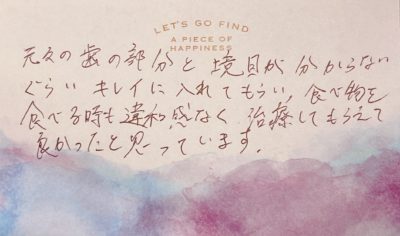 LET'S GO FIND
A PIECE OF
HAPPINESS
元々の歯の部分と境目が分からない
ぐらいキレイに入れてもらい、食べ物を
食べる時も違和感なく治療してもらえて
良かったと思っています。